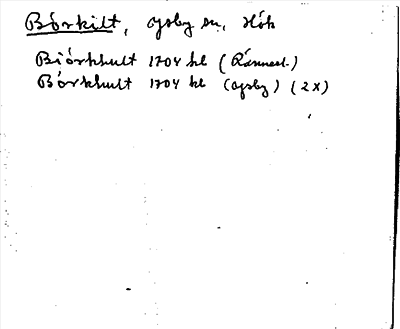 Bórkilt, Ojsby sn, Hök
Biórkhult 1704 kl (Rännesl.)
Bórkhult 1704 kl (Ojsby) (2x)